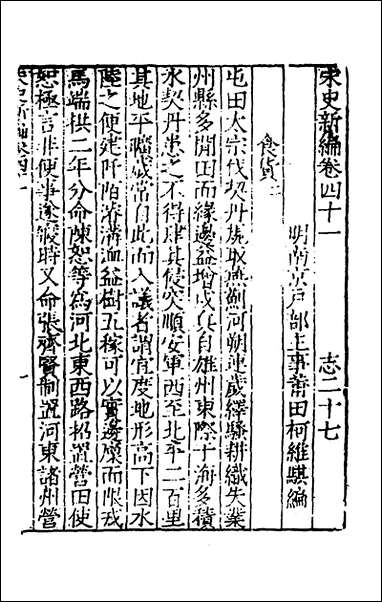 宋史新編卷四十一　志二十七
明南京戶部主事莆田柯維騏編
食貨二
屯田太宗伐契丹規取燕薊河朔連歲繹騷耕織失業
州縣多閒田而緣邊益增戍兵自雄州東際于海多積
水契丹患之不得肆其侵突順安軍西至北平二百里
其地平曠歲常自此而入議者謂宜度地形高下因水
陸之便建阡陌濬溝洫益樹五稼可以實邊廩而限戎
馬端拱二年分命陳恕等爲河北東西路招置營田使
恕極言非便事遂寢時又命張齊賢制置河東諸州營